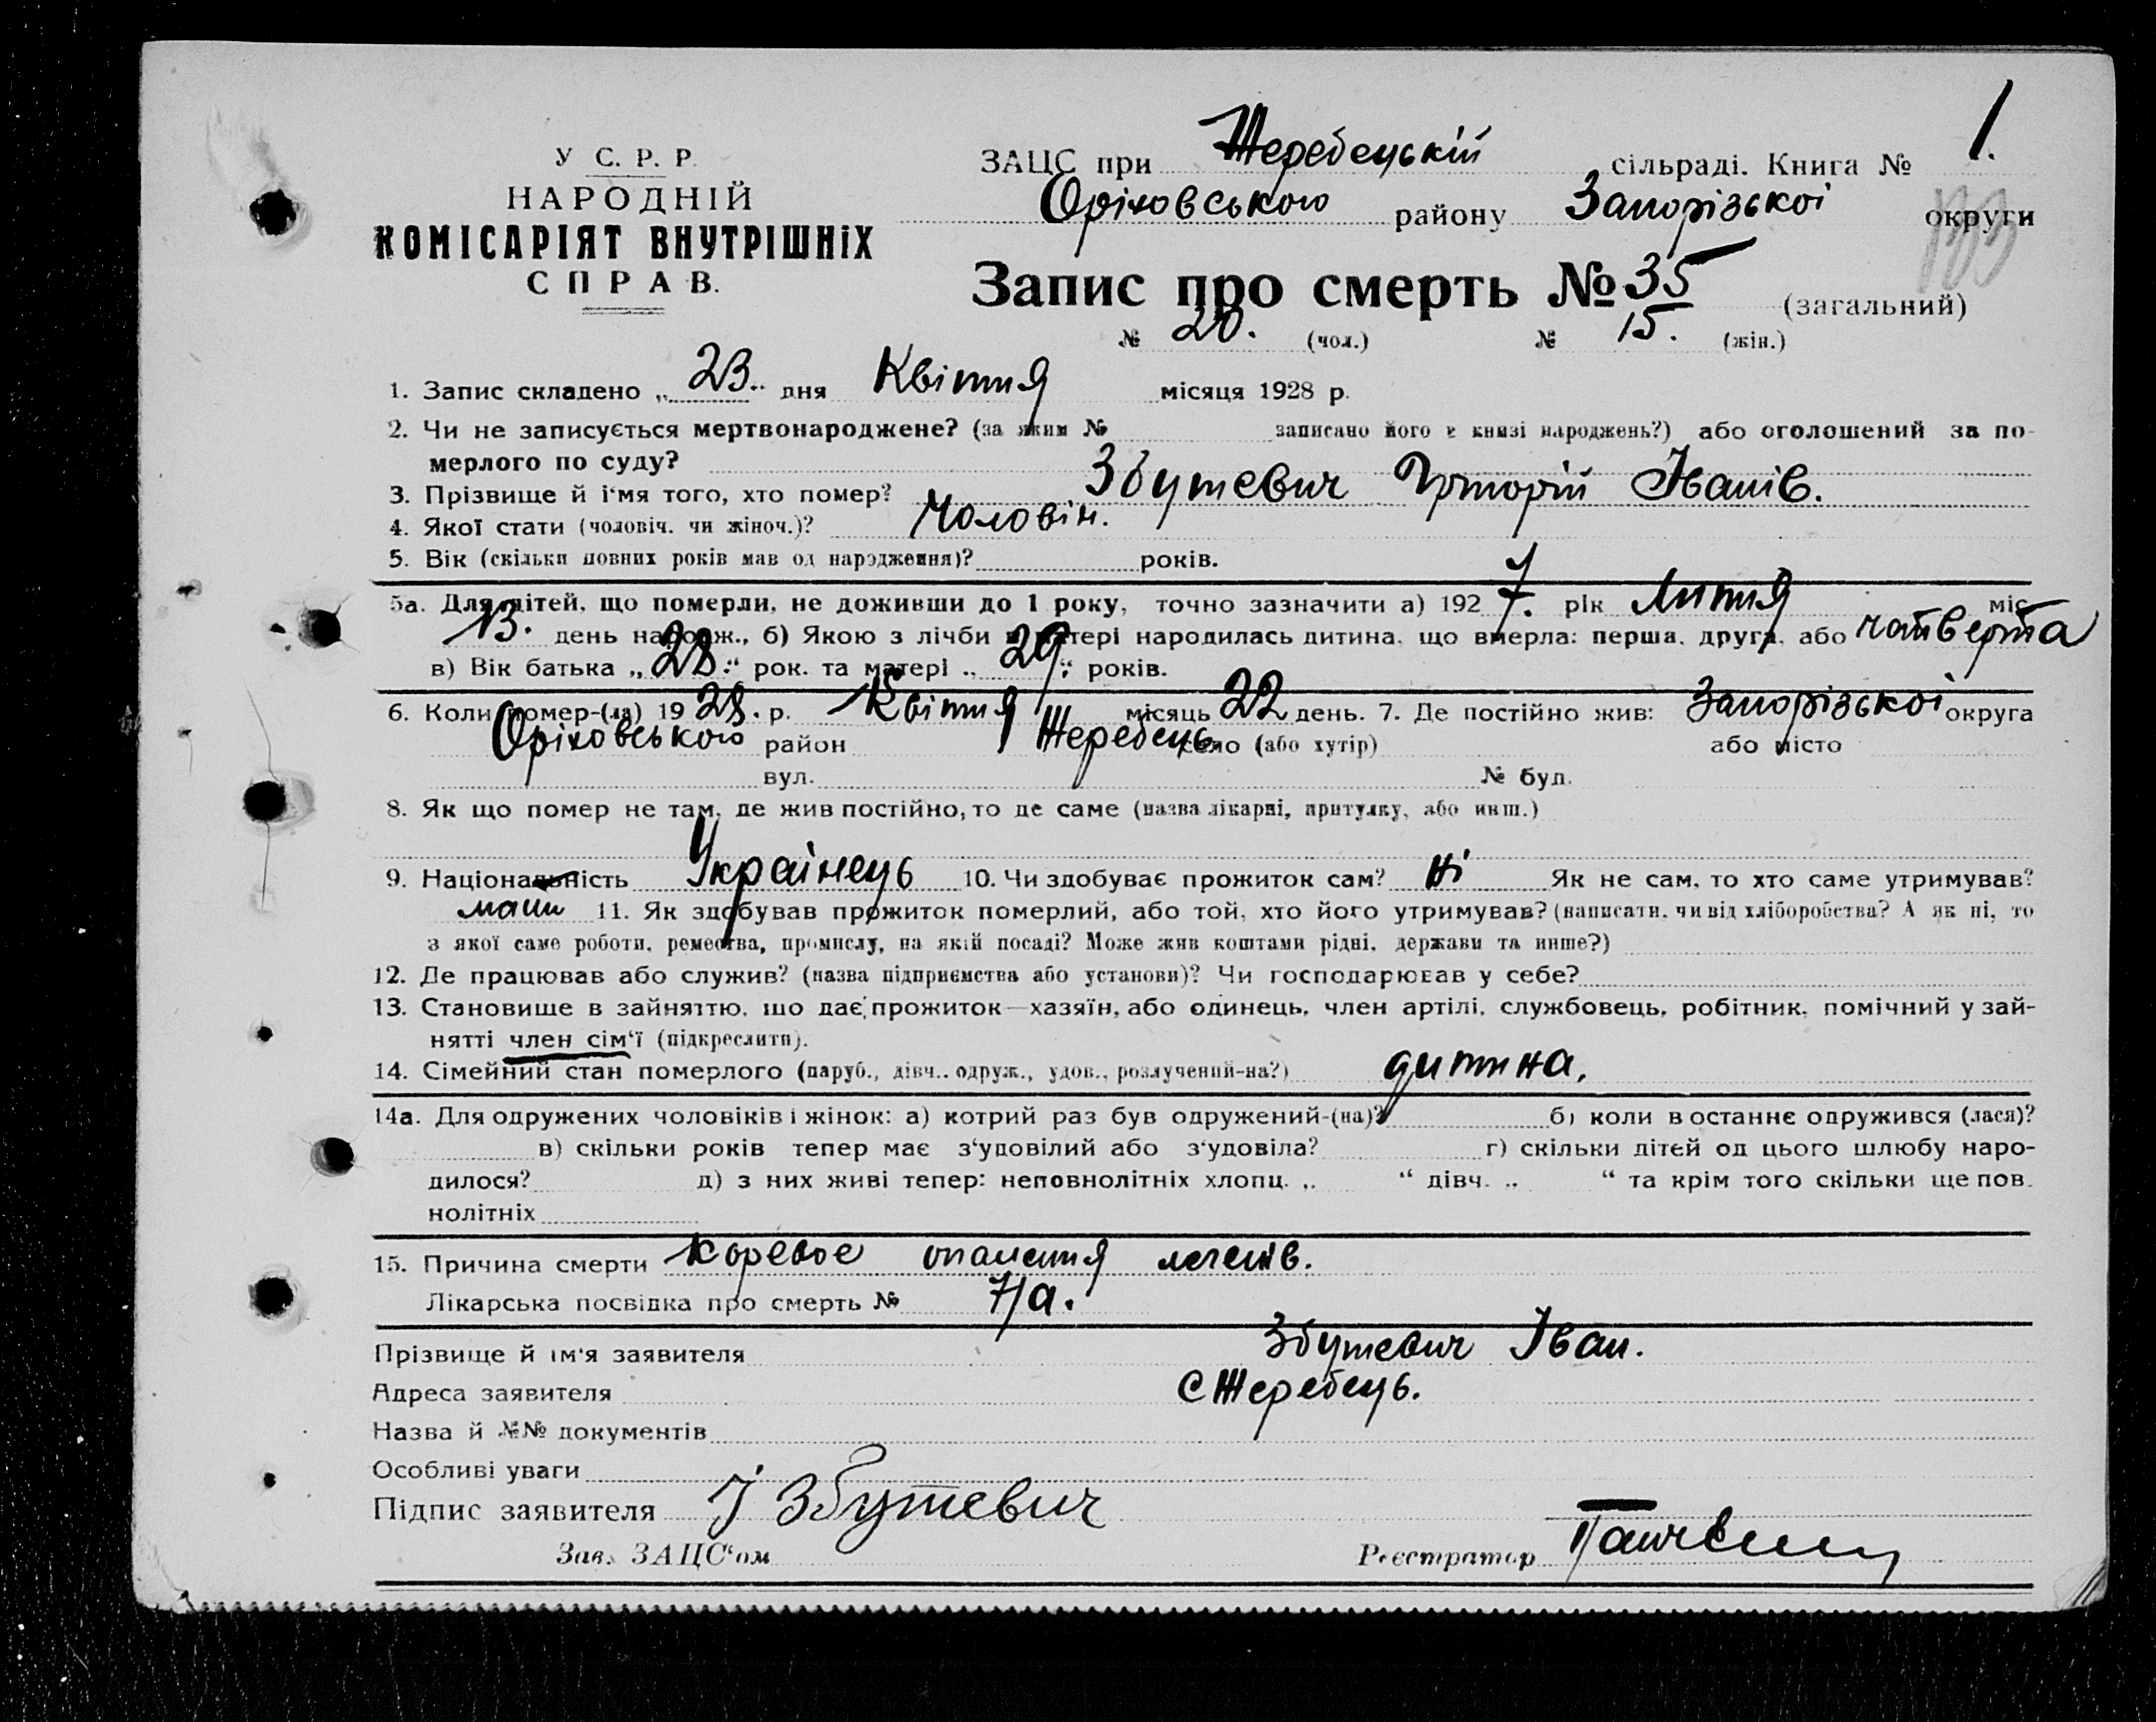 У С. Р. Р.
НАРОДНІЙ
КОМІСАРІЯТ ВНУТРІШНІХ
СПРАВ.
ЗАЦС при Жеребецькій сільраді. Книга № 1.
Оріховського району Запорізької округи
133
Запис про смерть № 35 (загальний)
№ 20. (чол.) № 15. (жін.)
1. Запис складено „23.“ дня Квітня місяця 1928 р.
2. Чи не записується мертвонароджене? (за яким № записано його в книзі народжень?) або оголошений за по-
мерлого по суду?
3. Прізвище й і'мя того, хто помер? Збутевич Григорій Іванів.
4. Якої стати (чоловіч. чи жіноч.)? Чоловіч.
5. Вік (скільки повних років мав од народження)? років.
5а. Для дітей, що померли, не доживши до 1 року, точно зазначити а) 1927. рік Липня міс.
13. день народж., б) Якою з лічби в матері народилась дитина, що вмерла: перша, друга, або четверта
в) Вік батька „28.“ рок. та матері „29“ років.
6. Коли помер-(ла) 1928. р. Квітня місяць 22 день. 7. Де постійно жив: Запорізької округа
Оріховського район Жеребець село (або хутір) або місто
вул. № буд.
8. Як що помер не там, де жив постійно, то де саме (назва лікарні, притулку, або инш.)
9. Національність Українець 10. Чи здобуває прожиток сам? ні Як не сам, то хто саме утримував?
мати 11. Як здобував прожиток померлий, або той, хто його утримував? (написати, чи від хліборобства? А як ні, то
з якої саме роботи, ремества, промислу, на якій посаді? Може жив коштами рідні, держави та инше?)
12. Де працював або служив? (назва підприємства або установи)? Чи господарював у себе?
13. Становище в зайняттю, що дає прожиток—хазяїн, або одинець, член артілі, службовець, робітник, помічний у зай-
нятті член сім'ї (підкреслити).
14. Сімейний стан померлого (паруб., дівч., одруж., удов., розлучений-на?) дитина,
14а. Для одружених чоловіків і жінок: а) котрий раз був одружений-(на)? б) коли востаннє одружився (лася)?
в) скільки років тепер має з'удовілий або з'удовіла? г) скільки дітей од цього шлюбу наро-
дилося? д) з них живі тепер: неповнолітніх хлопц. „ “ дівч. „ “ та крім того скільки ще пов.
нолітніх
15. Причина смерти коревое опалення легенів.
Лікарська посвідка про смерть № 7/а.
Прізвище й ім'я заявителя Збутевич Іван.
Адреса заявителя С Жеребець.
Назва й №№ документів
Особливі уваги
Підпис заявителя І Збутевич
Зав. ЗАЦС'ом Реєстратор